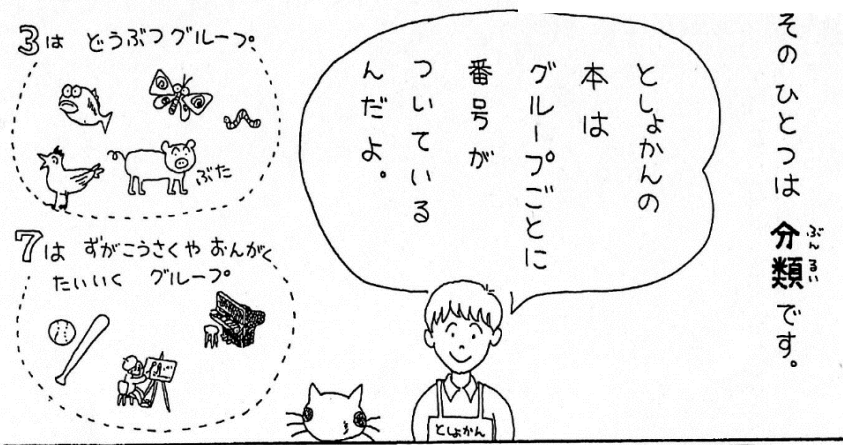 そのひとつは分類です。
ぶんるい
としょかんの
本は
グループごとに
番号が
ついている
んだよ。
3は どうぶつグループ
ぶた
7は ずがこうさくや おんがく
たいいく グループ
としょかん